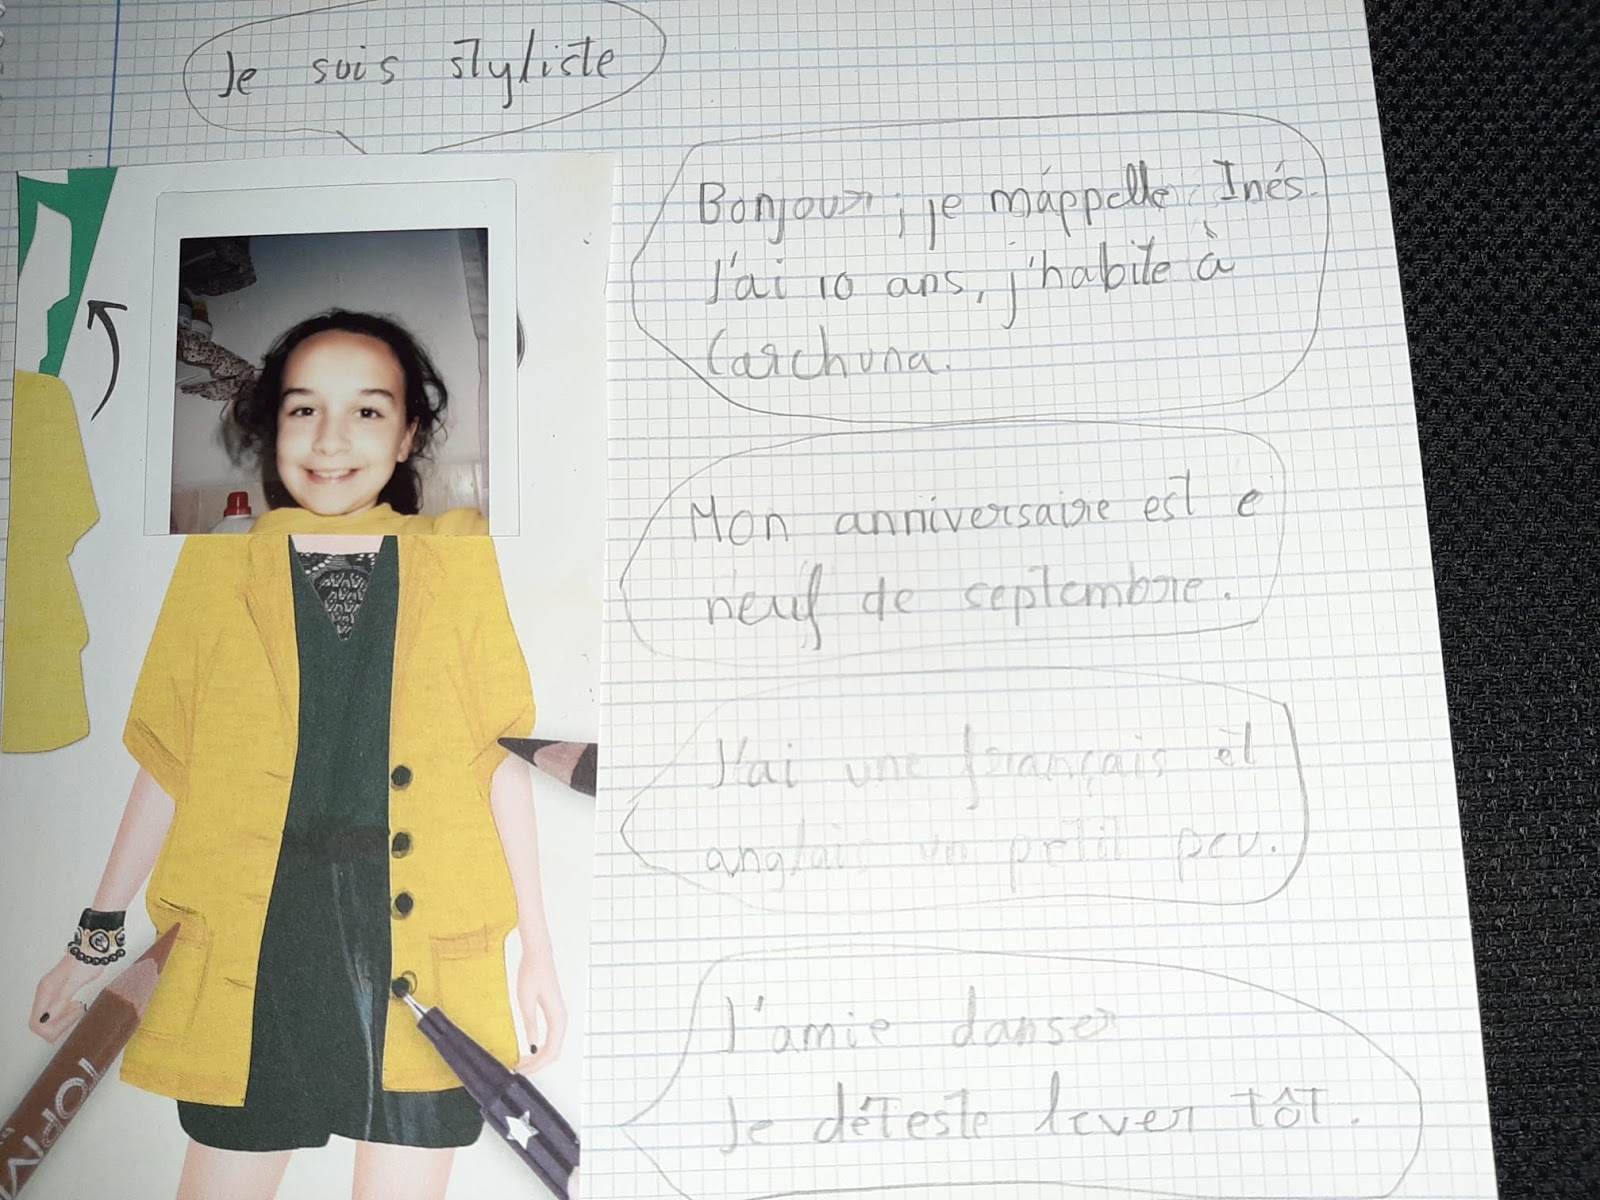 Je suis styliste
Bonjour, je m'appelle Inés.
J'ai 10 ans, j'habite à
Carchuna.
Mon anniversaire est e
neuf de septembre.
J'ai une français et
anglais un petit peu.
J'amie danser
Je déteste lever tôt.